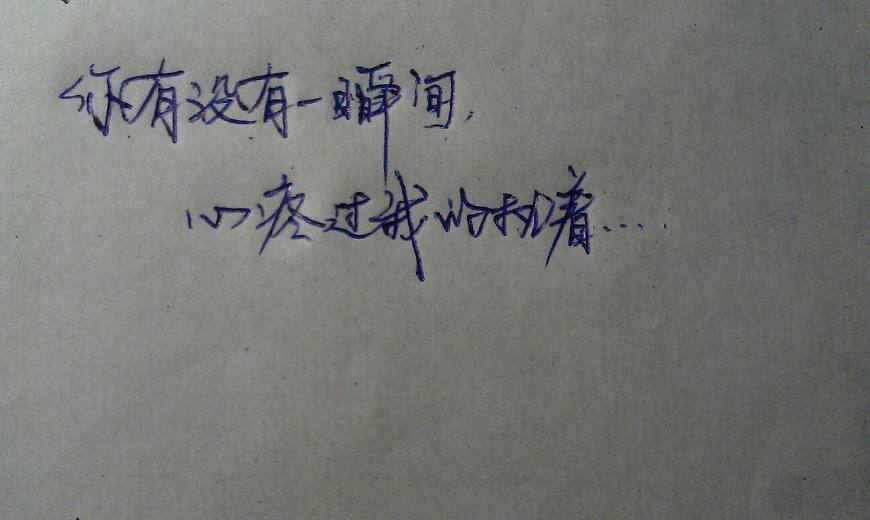 你有没有一瞬间,
心疼过我的执着....